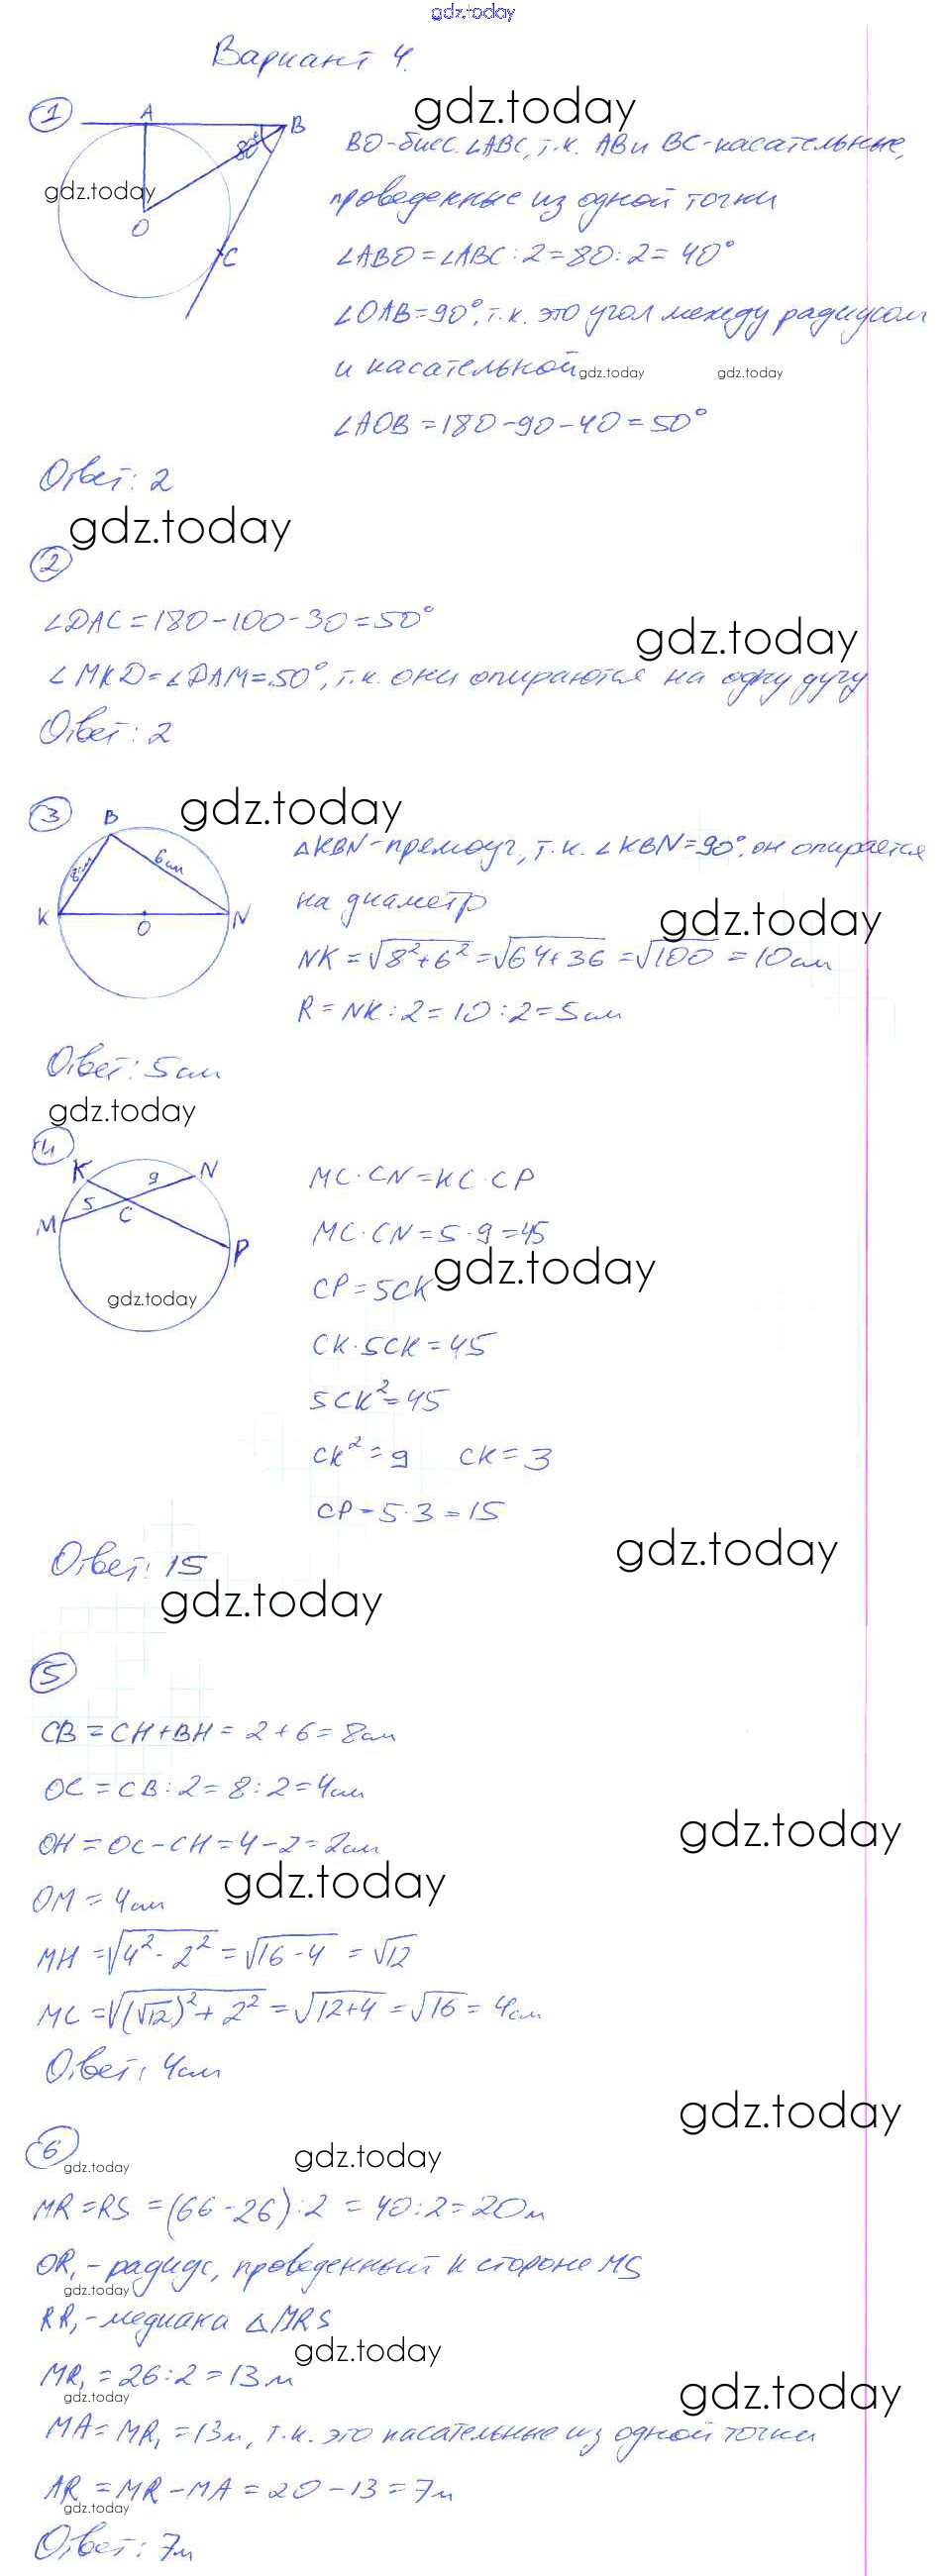 gdz.today
Вариант 4.
1
A
B
80°
O
C
gdz.today
gdz.today
BO-бисс. ∠ABC, т.к. AB и BC-касательные,
проведенные из одной точки
∠ABO = ∠ABC : 2 = 80 : 2 = 40°
∠OAB = 90°, т.к. это угол между радиусом
и касательной
gdz.today
gdz.today
∠AOB = 180 - 90 - 40 = 50°
Ответ: 2
gdz.today
2
∠DAC = 180 - 100 - 30 = 50°
gdz.today
∠MKD = ∠DAM = 50°, т.к. они опираются на одну дугу
Ответ: 2
3
gdz.today
B
8см
6см
K
O
N
△KBN - прямоуг, т.к. ∠KBN = 90°, он опирается
на диаметр
gdz.today
NK = √8²+6² = √64+36 = √100 = 10см
R = NK : 2 = 10 : 2 = 5см
Ответ: 5см
gdz.today
4
K
9
N
5
M
C
P
gdz.today
MC · CN = KC · CP
MC · CN = 5 · 9 = 45
CP = 5CK
gdz.today
CK · 5CK = 45
5CK² = 45
CK² = 9 CK = 3
CP = 5 · 3 = 15
gdz.today
Ответ: 15
gdz.today
5
CB = CH + BH = 2 + 6 = 8см
OC = CB : 2 = 8 : 2 = 4см
gdz.today
OH = OC - CH = 4 - 2 = 2см
gdz.today
OM = 4см
MH = √4² - 2² = √16 - 4 = √12
MC = √(√12)² + 2² = √12+4 = √16 = 4см
Ответ: 4см
gdz.today
6
gdz.today
gdz.today
MR = RS = (66 - 26) : 2 = 40 : 2 = 20м
OR₁ - радиус, проведенный к стороне MS
gdz.today
RR₁ - медиана △MRS
gdz.today
MR₁ = 26 : 2 = 13м
gdz.today
gdz.today
MA = MR₁ = 13м, т.к. это касательные из одной точки
AR = MR - MA = 20 - 13 = 7м
gdz.today
Ответ: 7м